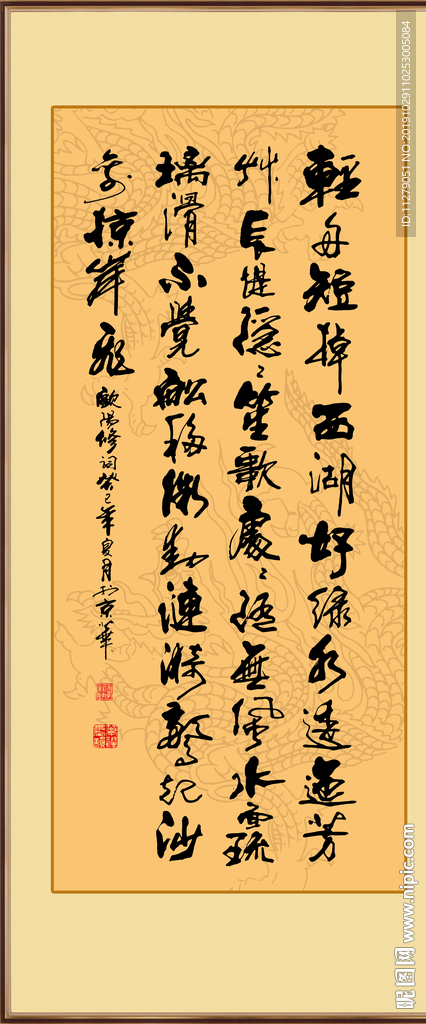 輕舟短棹西湖好綠水逶迤芳
艸長堤隱々笙歌處々隨無風水面琉
璃滑不覺船移微動漣漪驚起沙
禽掠岸飛
歐陽修詞癸巳年夏月於京華
ID:11279051 NO:20191029110253005084
昵图网 www.nipic.com